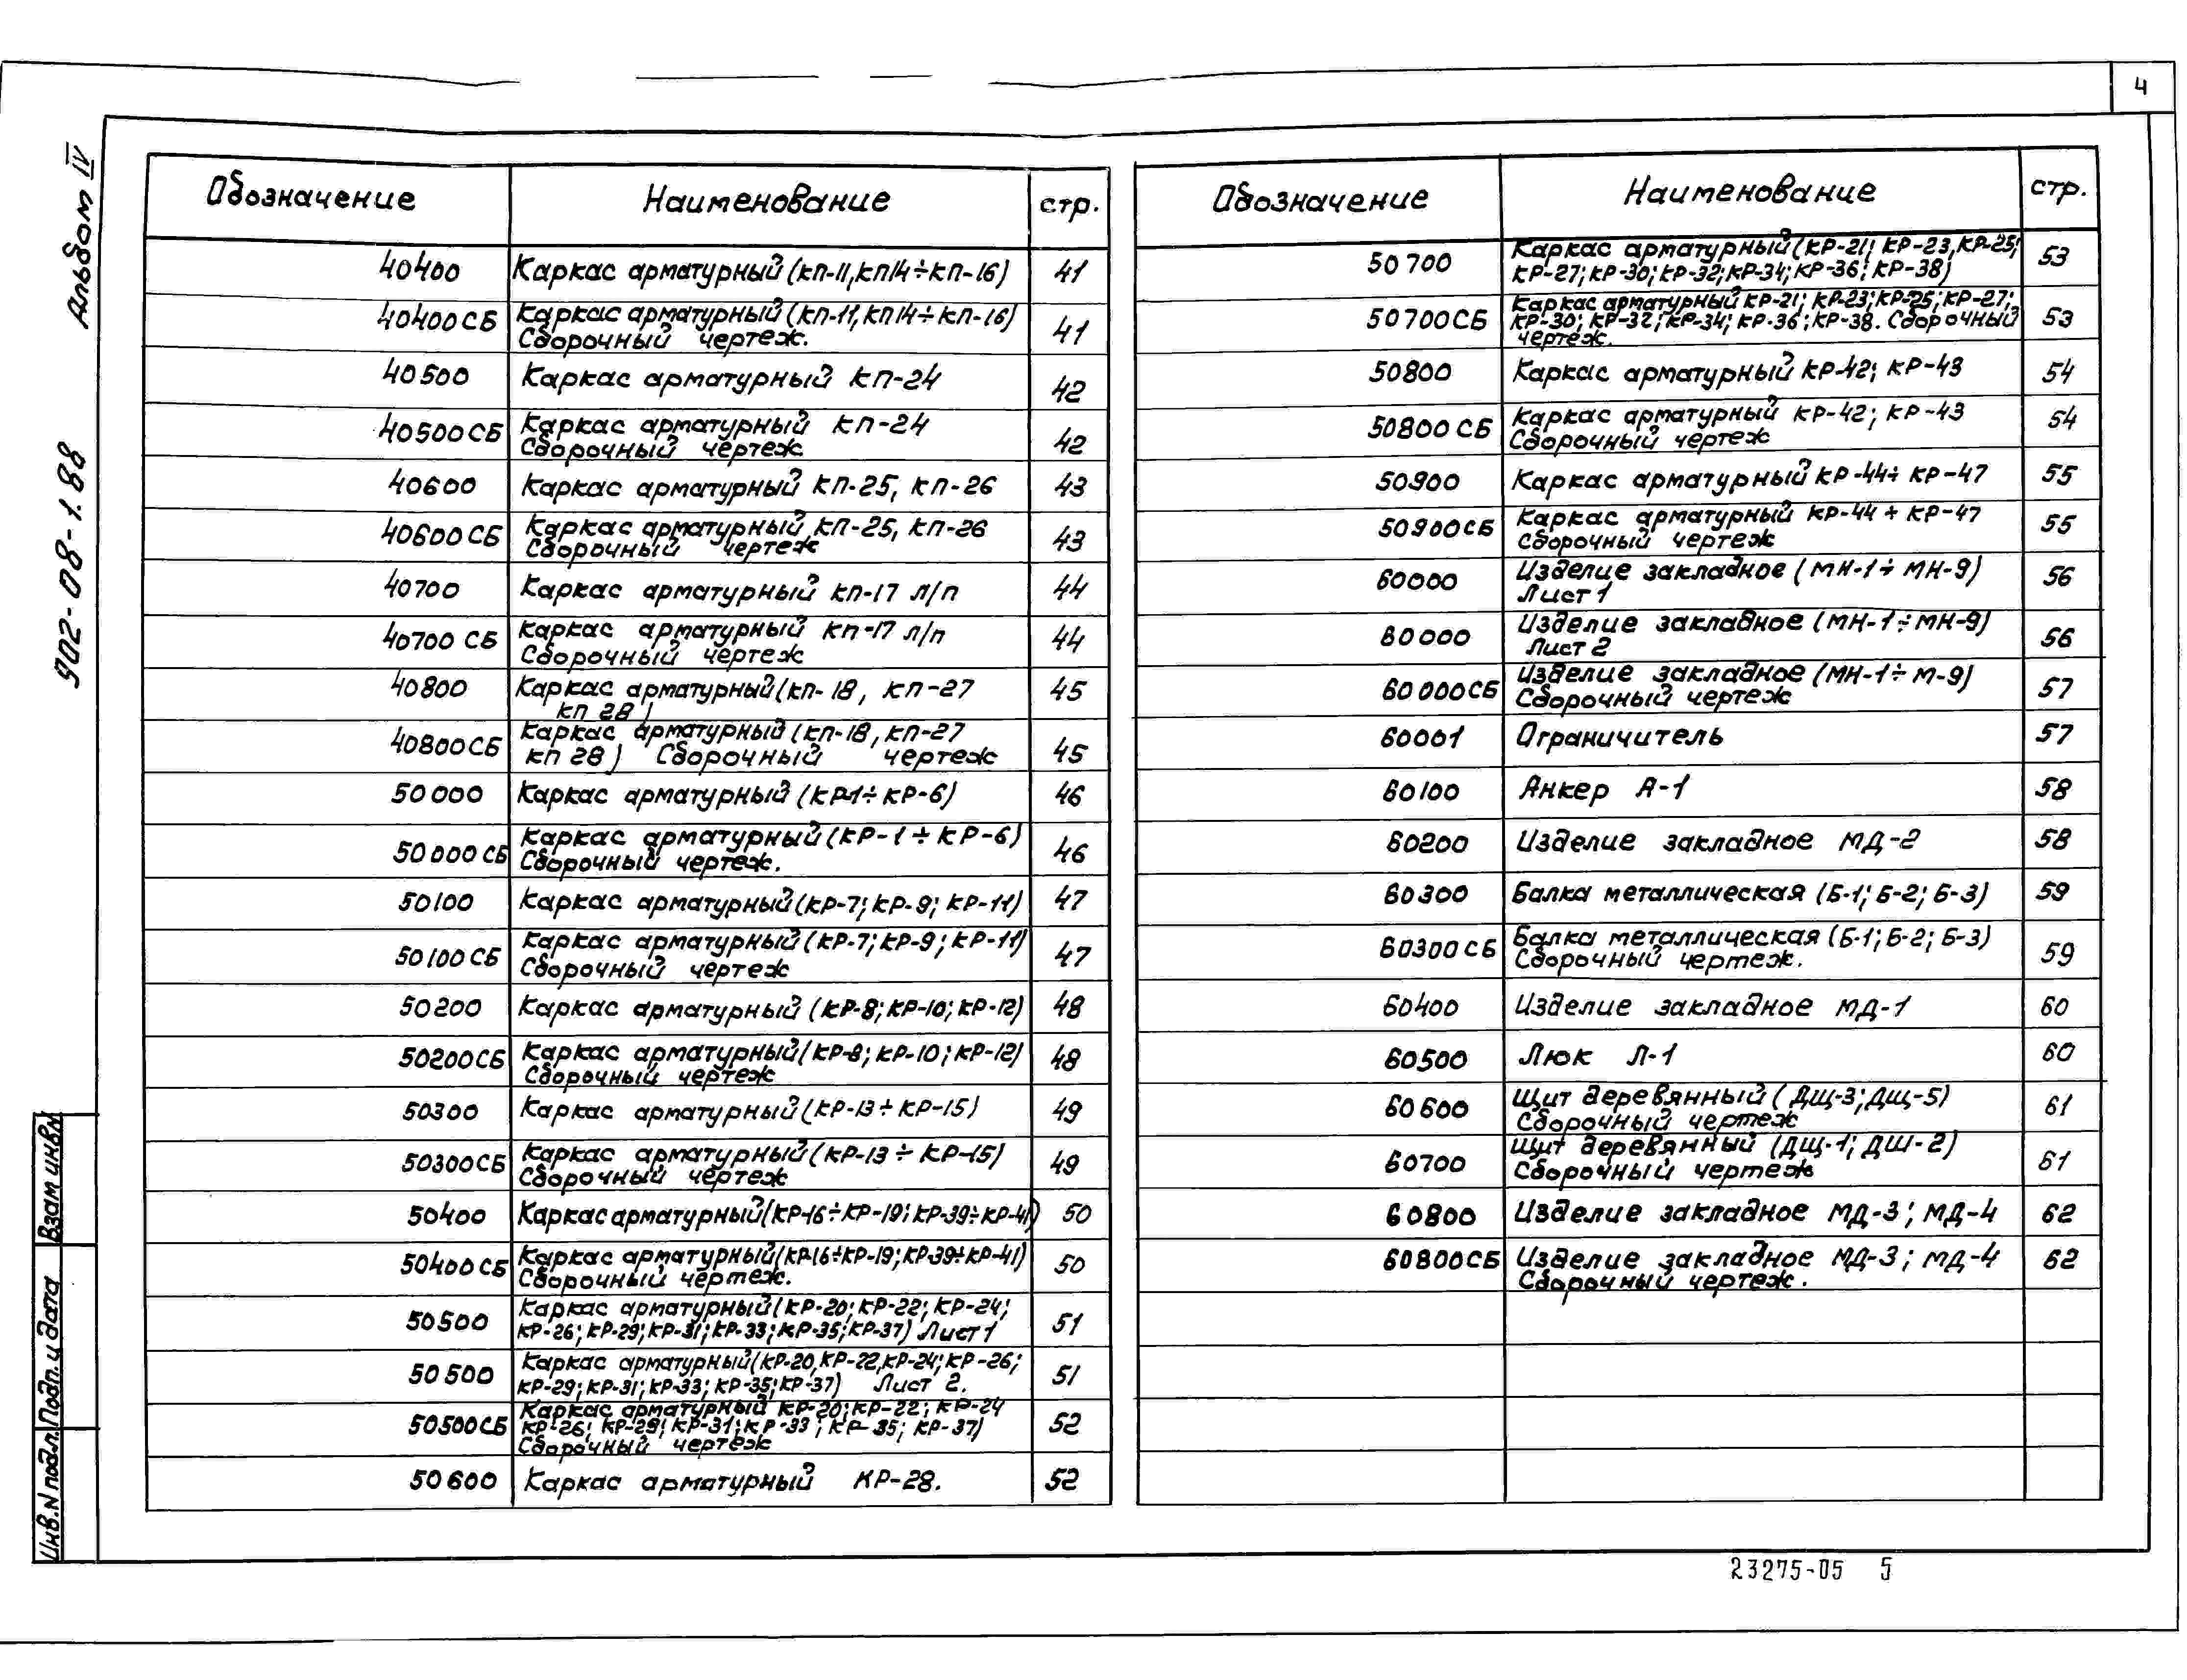 4
Альбом IV
902-08-1.88
Обозначение Наименование стр.
40400 Каркас арматурный (КП-11, КП14÷КП-16) 41
40400СБ Каркас арматурный (КП-11, КП14÷КП-16)
Сборочный чертеж. 41
40500 Каркас арматурный КП-24 42
40500СБ Каркас арматурный КП-24
Сборочный чертеж 42
40600 Каркас арматурный КП-25, КП-26 43
40600СБ Каркас арматурный КП-25, КП-26
Сборочный чертеж 43
40700 Каркас арматурный КП-17 л/п 44
40700 СБ Каркас арматурный КП-17 л/п
Сборочный чертеж 44
40800 Каркас арматурный (КП-18, КП-27
КП 28) 45
40800СБ Каркас арматурный (КП-18, КП-27
КП 28) Сборочный чертеж 45
50000 Каркас арматурный (КР-1÷КР-6) 46
50000СБ Каркас арматурный (КР-1÷КР-6)
Сборочный чертеж. 46
50100 Каркас арматурный (КР-7; КР-9; КР-11) 47
50100СБ Каркас арматурный (КР-7; КР-9; КР-11)
Сборочный чертеж 47
50200 Каркас арматурный (КР-8; КР-10; КР-12) 48
50200СБ Каркас арматурный (КР-8; КР-10; КР-12)
Сборочный чертеж 48
50300 Каркас арматурный (КР-13÷КР-15) 49
50300СБ Каркас арматурный (КР-13÷КР-15)
Сборочный чертеж 49
50400 Каркас арматурный (КР-16÷КР-19; КР-39÷КР-41) 50
50400СБ Каркас арматурный (КР-16÷КР-19; КР-39÷КР-41)
Сборочный чертеж. 50
50500 Каркас арматурный (КР-20; КР-22; КР-24;
КР-26; КР-29; КР-31; КР-33; КР-35; КР-37) Лист 1 51
50500 Каркас арматурный (КР-20, КР-22, КР-24; КР-26;
КР-29; КР-31; КР-33; КР-35; КР-37) Лист 2. 51
50500СБ Каркас арматурный КР-20; КР-22; КР-24
КР-26; КР-29; КР-31; КР-33; КР-35; КР-37)
Сборочный чертеж 52
50600 Каркас арматурный КР-28. 52
Обозначение Наименование стр.
50700 Каркас арматурный (КР-21; КР-23, КР-25;
КР-27; КР-30; КР-32; КР-34; КР-36; КР-38) 53
50700СБ Каркас арматурный КР-21; КР-23; КР-25; КР-27;
КР-30; КР-32; КР-34; КР-36; КР-38. Сборочный
чертеж. 53
50800 Каркас арматурный КР-42; КР-43 54
50800СБ Каркас арматурный КР-42; КР-43
Сборочный чертеж 54
50900 Каркас арматурный КР-44÷КР-47 55
50900СБ Каркас арматурный КР-44÷КР-47
Сборочный чертеж 55
60000 Изделие закладное (МН-1÷МН-9)
Лист 1 56
60000 Изделие закладное (МН-1÷МН-9)
Лист 2 56
60000СБ Изделие закладное (МН-1÷М-9)
Сборочный чертеж 57
60001 Ограничитель 57
60100 Анкер А-1 58
60200 Изделие закладное МД-2 58
60300 Балка металлическая (Б-1; Б-2; Б-3) 59
60300СБ Балка металлическая (Б-1; Б-2; Б-3)
Сборочный чертеж. 59
60400 Изделие закладное МД-1 60
60500 Люк Л-1 60
60600 Щит деревянный (ДЩ-3; ДЩ-5)
Сборочный чертеж 61
60700 Щит деревянный (ДЩ-1; ДШ-2)
Сборочный чертеж 61
60800 Изделие закладное МД-3; МД-4 62
60800СБ Изделие закладное МД-3; МД-4
Сборочный чертеж. 62
Инв.N подл. Подп. и дата Взам инвN
23275-05 5